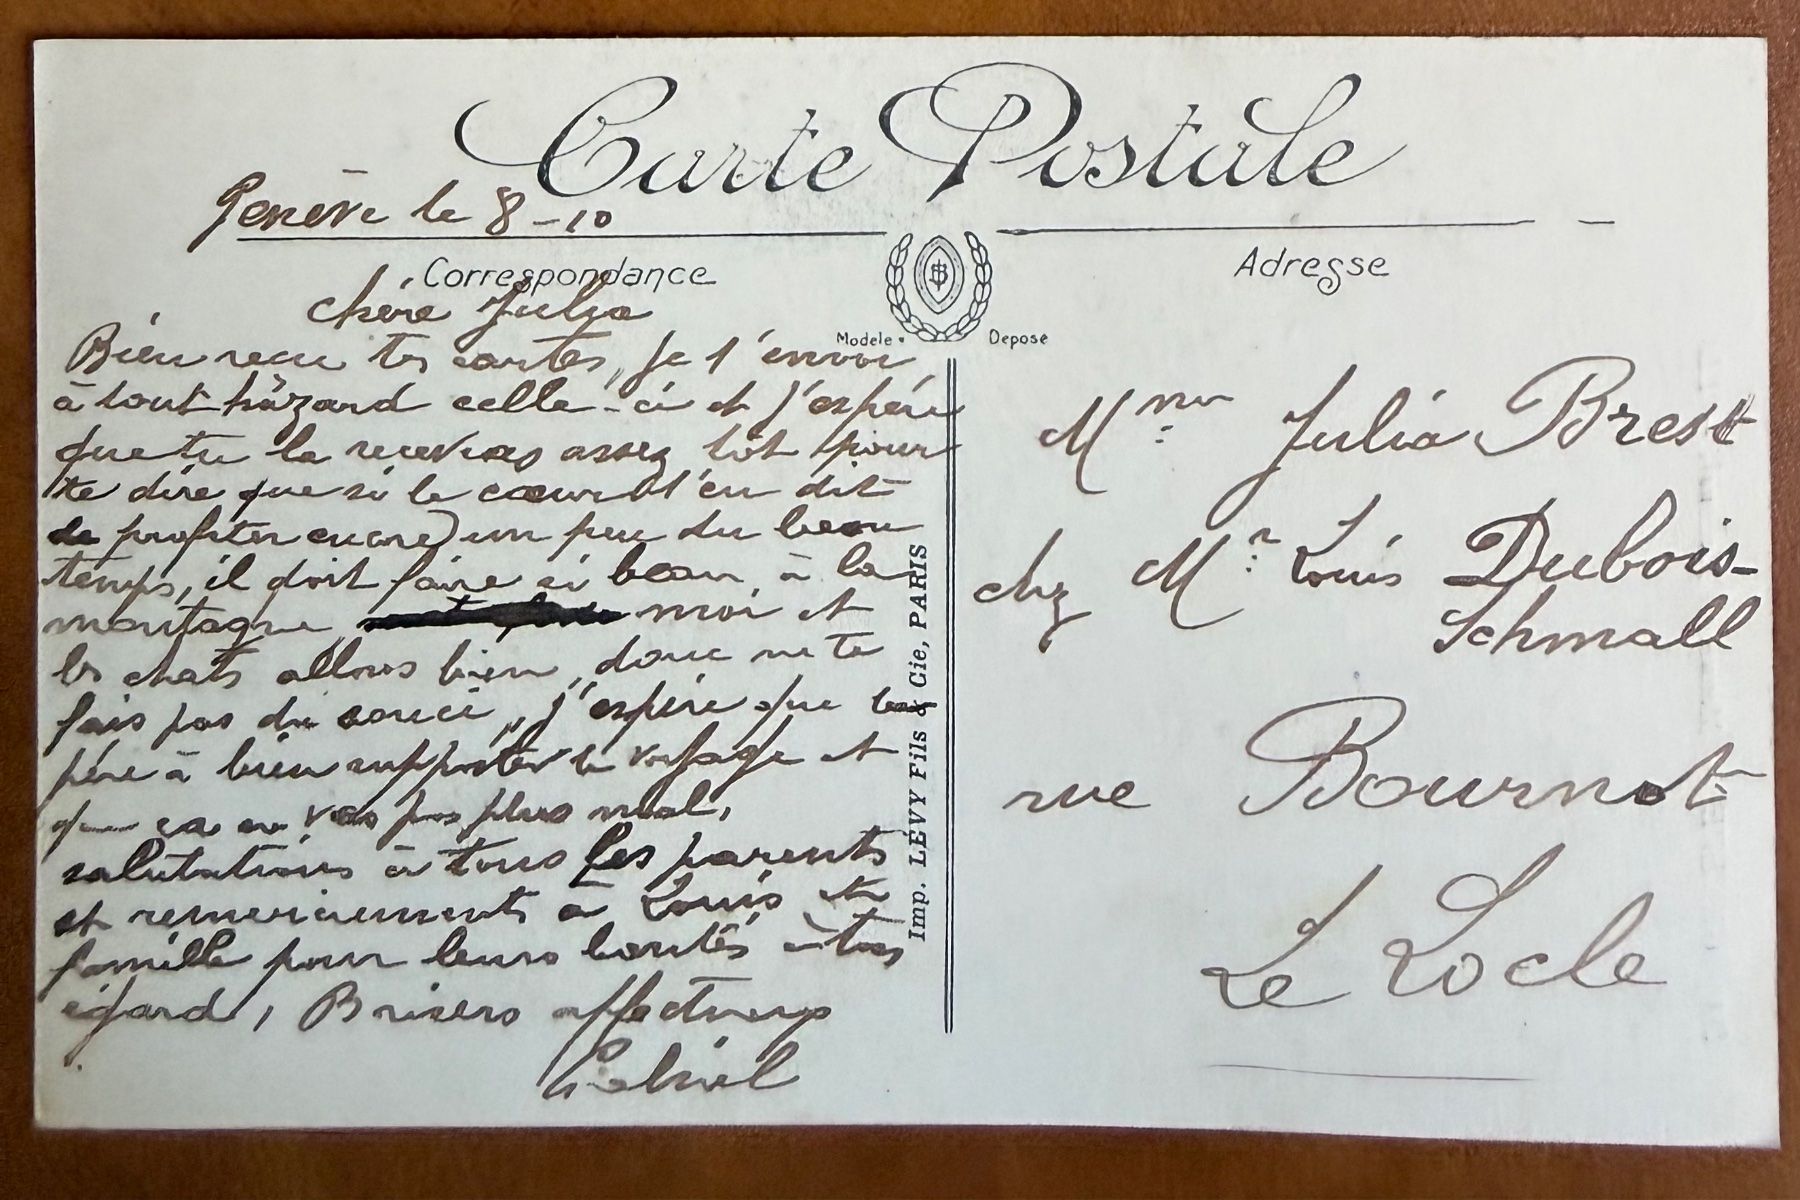 Carte Postale
Genève le 8-10
Correspondance
Adresse
Modele Depose
chère Julia
Bien reçu tes cartes, je t'envoi
à tout házard celle-ci et j'espère
que tu la recevras assez tôt pour
te dire que si le cœur t'en dit
de profiter encore un peu du beau
temps, il doit faire si beau à la
montagne moi et
les chats allons bien, donc ne te
fais pas du souci, j'espère que
père à bien supporter le voyage et
que ça va pas plus mal,
salutations à tous les parents
et remerciements à Louis et
famille pour leurs bontés à ton
égard, Baisers affectueux
Imp. LÉVY Fils & Cie, PARIS
Mme Julia Brest
chz Mr Louis Dubois-
Schmall
rue Bournot
Le Locle